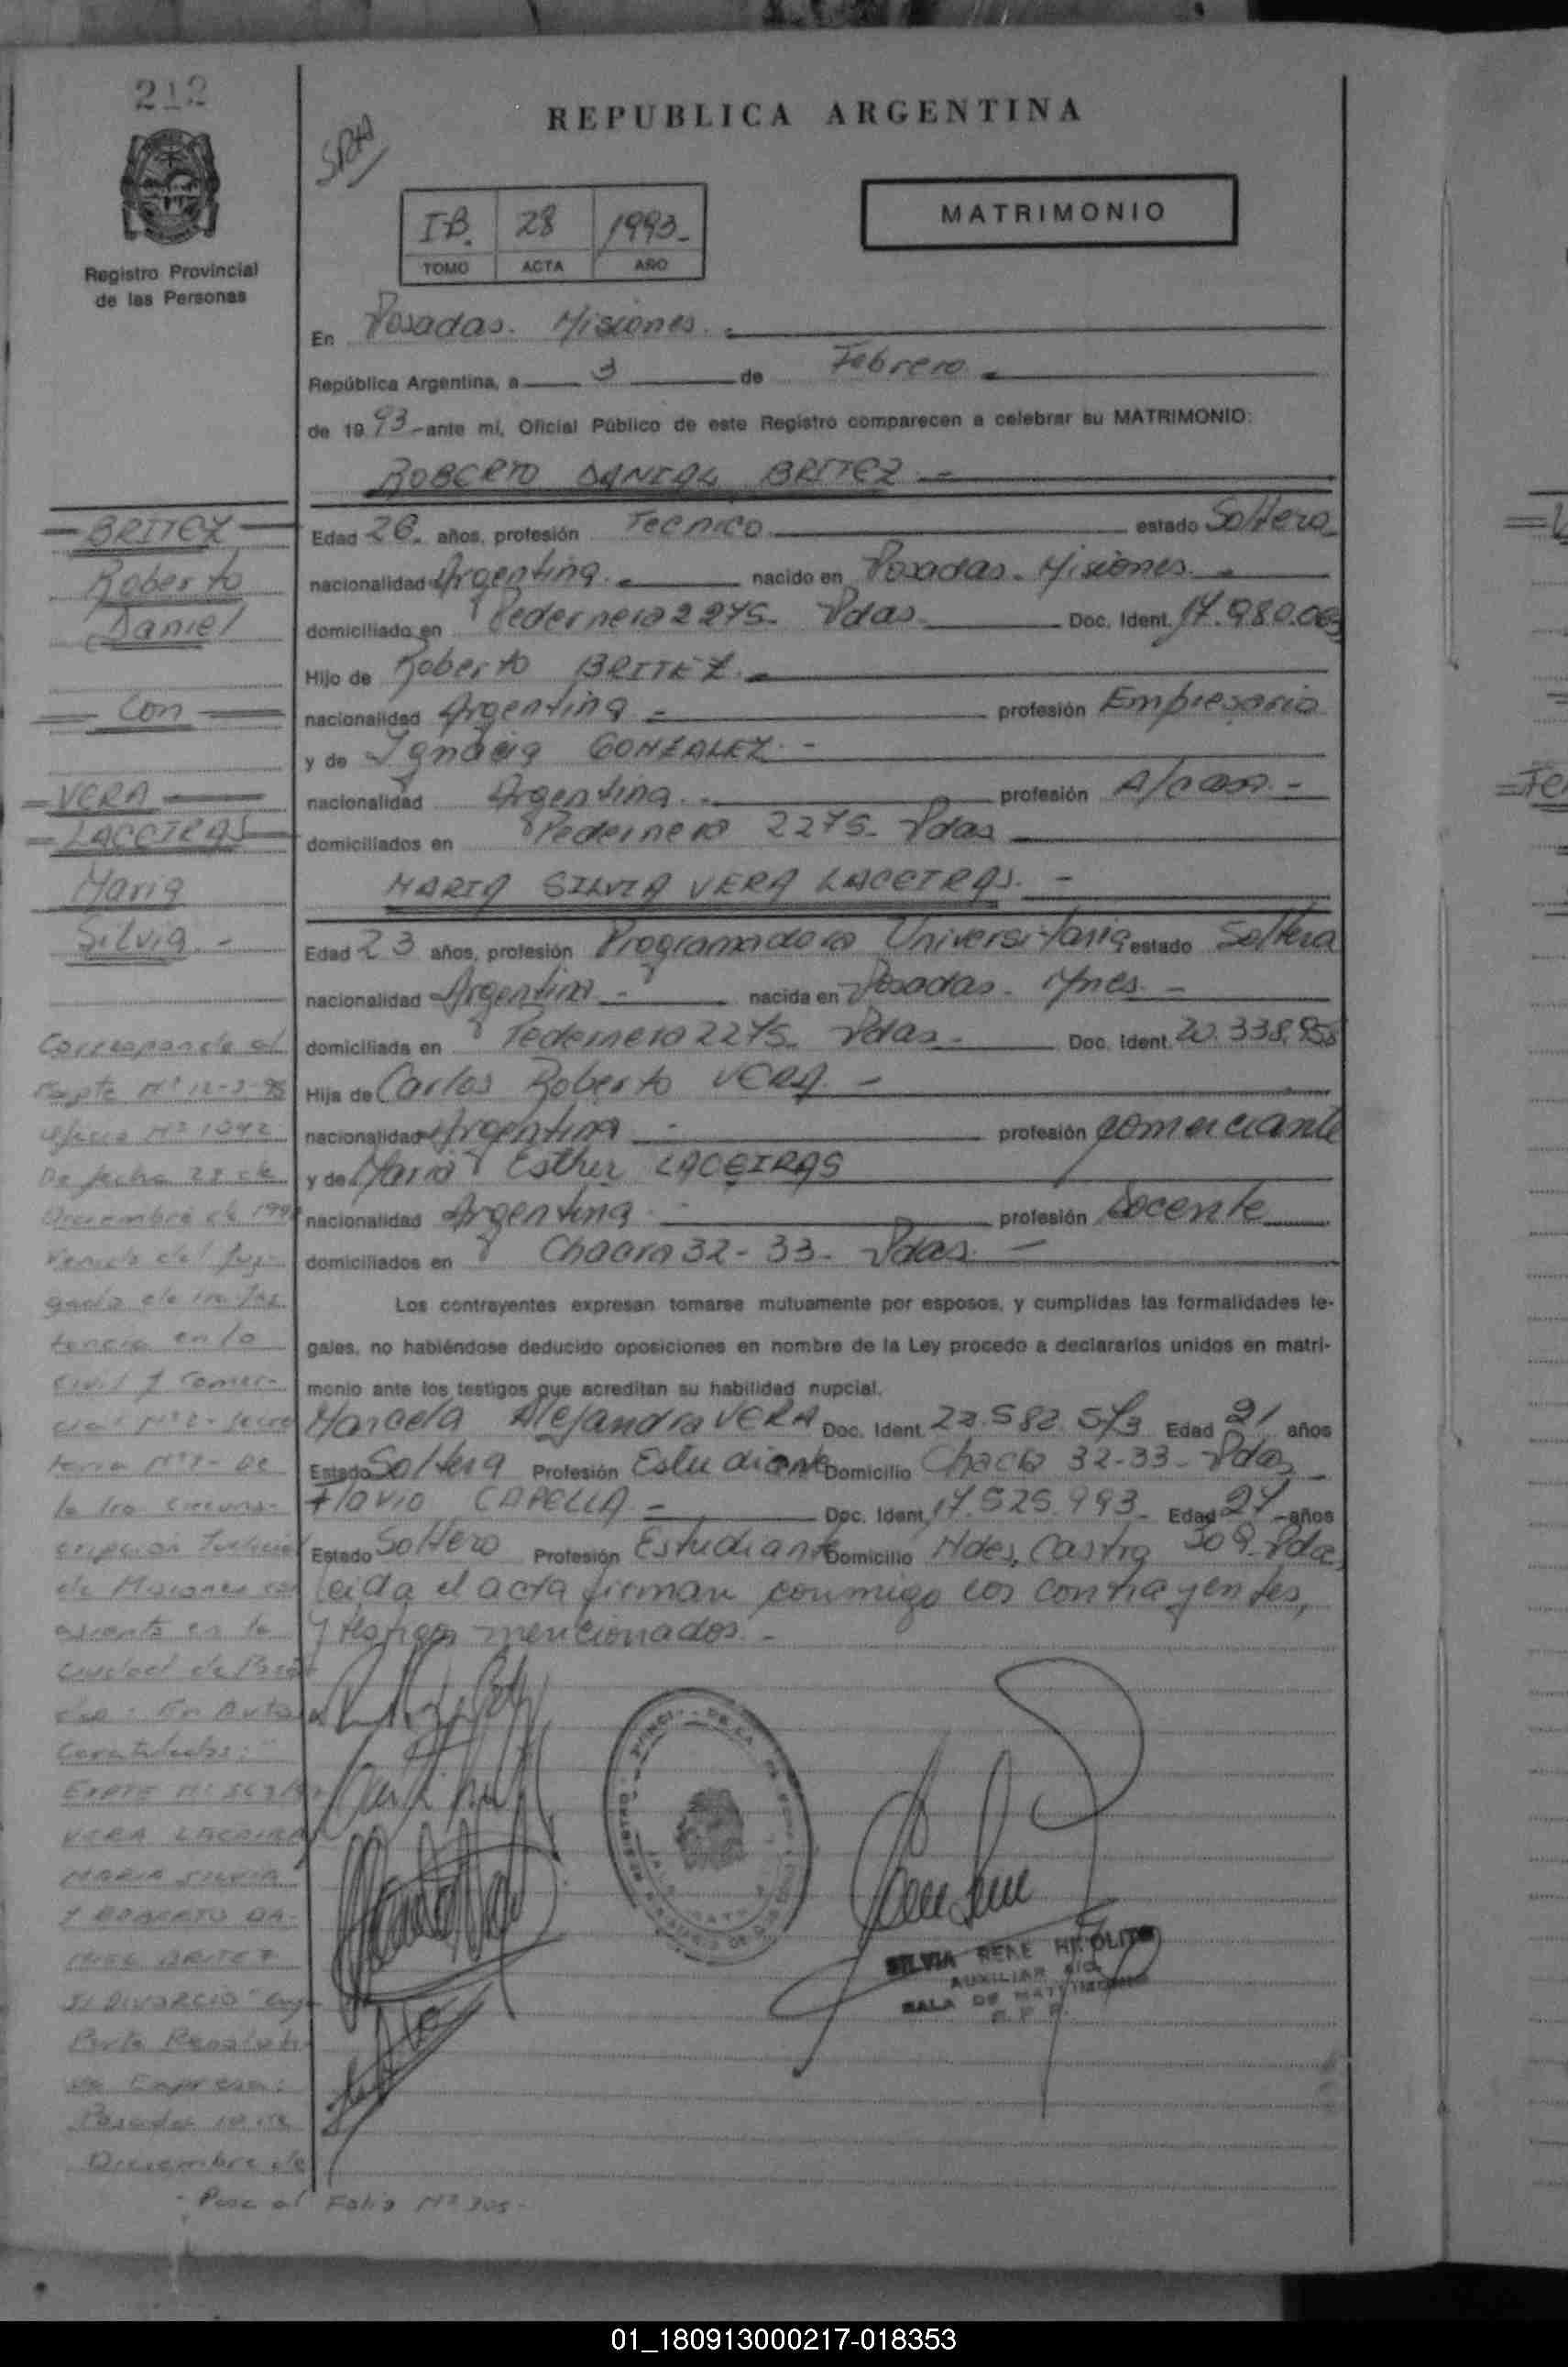 212
REPUBLICA ARGENTINA
Registro Provincial
de las Personas
I-B. 28 1993-
TOMO ACTA AÑO
MATRIMONIO
En Posadas. Misiones.
República Argentina, a 3 de Febrero
de 1993 - ante mí, Oficial Público de este Registro comparecen a celebrar su MATRIMONIO:
ROBERTO DANIEL BRITEZ -
Edad 26. años, profesión Tecnico estado Soltero
nacionalidad Argentina. nacido en Posadas. Misiones
domiciliado en Pedernera 2275. Pdas. Doc. Ident. 17.980.063
Hijo de Roberto BRITEZ.
nacionalidad Argentina - profesión Empresario
y de Ignacia GONZALEZ. -
nacionalidad Argentina. profesión A/casa. -
domiciliados en Pedernera 2275. Pdas
MARIA SILVIA VERA LACEIRAS. -
Edad 23 años, profesión Programadora Universitaria estado Soltera
nacionalidad Argentina - nacida en Posadas. Mnes. -
domiciliada en Pedernera 2275. Pdas. Doc. Ident. 20.338.958
Hija de Carlos Roberto VERA. -
nacionalidad Argentina - profesión comerciante
y de Maria Esther LACEIRAS
nacionalidad Argentina - profesión Docente
domiciliados en Chacra 32-33- Pdas. -
Los contrayentes expresan tomarse mutuamente por esposos, y cumplidas las formalidades le-
gales, no habiéndose deducido oposiciones en nombre de la Ley procedo a declararlos unidos en matri-
monio ante los testigos que acreditan su habilidad nupcial.
Marcela Alejandra VERA Doc. Ident. 22.582.573 Edad 21 años
Estado Soltera Profesión Estudiante Domicilio Chacra 32-33- Pdas
Flavio CAPELLA - Doc. Ident. 17.525.993- Edad 27 - años
Estado Soltero Profesión Estudiante Domicilio Hdes. Castro 309. Pdas
leida el acta firman conmigo los contrayentes,
y testigos mencionados. -
SILVIA RENE HIPOLITO
AUXILIAR
SALA DE MATRIMONIO
R. P. P.
BRITEZ
Roberto
Daniel
Con
VERA
LACEIRAS
Maria
Silvia. -
Corresponde al
Oficio Nº 1042
De fecha 28 de
Diciembre de
Venido del Juz-
gado de 1ra Ins
tancia en lo
Civil y Comer-
cial Nº 2- Secre
taria Nº 2- De
la 1ra Circuns-
cripción Judicial
de Misiones con
asiento en la
Ciudad de Posa
das: En Autos
Caratulados:"
EXPTE Nº
VERA LACEIRAS
MARIA SILVIA
Y ROBERTO DA-
NIEL BRITEZ
S/ DIVORCIO"
Parte Resoluti
va Expresa:
Posadas 10 de
Diciembre de
- Pasa al Folio Nº 305-
01_180913000217-018353